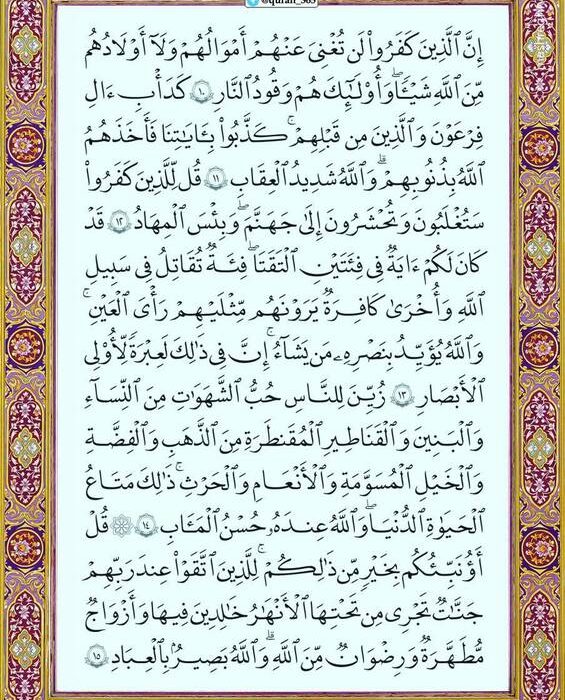 @quran_365
إِنَّ ٱلَّذِينَ كَفَرُوا۟ لَن تُغْنِىَ عَنْهُمْ أَمْوَٰلُهُمْ وَلَآ أَوْلَـٰدُهُم
مِّنَ ٱللَّهِ شَيْـًٔا ۖ وَأُو۟لَـٰٓئِكَ هُمْ وَقُودُ ٱلنَّارِ ١٠ كَدَأْبِ ءَالِ
فِرْعَوْنَ وَٱلَّذِينَ مِن قَبْلِهِمْ ۚ كَذَّبُوا۟ بِـَٔايَـٰتِنَا فَأَخَذَهُمُ
ٱللَّهُ بِذُنُوبِهِمْ ۗ وَٱللَّهُ شَدِيدُ ٱلْعِقَابِ ١١ قُل لِّلَّذِينَ كَفَرُوا۟
سَتُغْلَبُونَ وَتُحْشَرُونَ إِلَىٰ جَهَنَّمَ ۚ وَبِئْسَ ٱلْمِهَادُ ١٢ قَدْ
كَانَ لَكُمْ ءَايَةٌ فِى فِئَتَيْنِ ٱلْتَقَتَا ۖ فِئَةٌ تُقَـٰتِلُ فِى سَبِيلِ
ٱللَّهِ وَأُخْرَىٰ كَافِرَةٌ يَرَوْنَهُم مِّثْلَيْهِمْ رَأْىَ ٱلْعَيْنِ ۚ
وَٱللَّهُ يُؤَيِّدُ بِنَصْرِهِۦ مَن يَشَآءُ ۗ إِنَّ فِى ذَٰلِكَ لَعِبْرَةً لِّأُو۟لِى
ٱلْأَبْصَـٰرِ ١٣ زُيِّنَ لِلنَّاسِ حُبُّ ٱلشَّهَوَٰتِ مِنَ ٱلنِّسَآءِ
وَٱلْبَنِينَ وَٱلْقَنَـٰطِيرِ ٱلْمُقَنطَرَةِ مِنَ ٱلذَّهَبِ وَٱلْفِضَّةِ
وَٱلْخَيْلِ ٱلْمُسَوَّمَةِ وَٱلْأَنْعَـٰمِ وَٱلْحَرْثِ ۗ ذَٰلِكَ مَتَـٰعُ
ٱلْحَيَوٰةِ ٱلدُّنْيَا ۖ وَٱللَّهُ عِندَهُۥ حُسْنُ ٱلْمَـَٔابِ ١٤ ۞ قُلْ
أَؤُنَبِّئُكُم بِخَيْرٍ مِّن ذَٰلِكُمْ ۚ لِلَّذِينَ ٱتَّقَوْا۟ عِندَ رَبِّهِمْ
جَنَّـٰتٌ تَجْرِى مِن تَحْتِهَا ٱلْأَنْهَـٰرُ خَـٰلِدِينَ فِيهَا وَأَزْوَٰجٌ
مُّطَهَّرَةٌ وَرِضْوَٰنٌ مِّنَ ٱللَّهِ ۗ وَٱللَّهُ بَصِيرٌۢ بِٱلْعِبَادِ ١٥